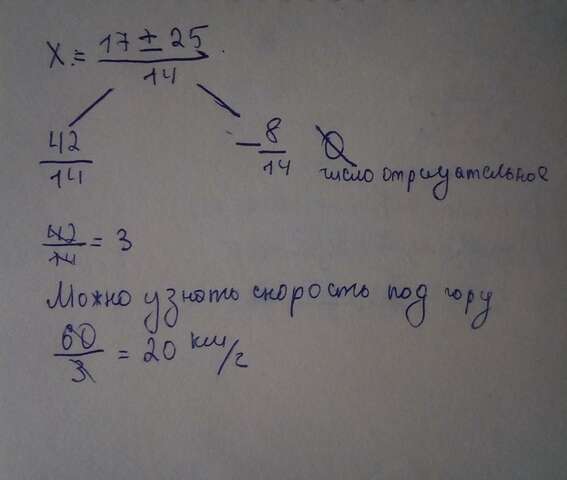 X = 17 ± 25 / 14
42 / 14
- 8 / 14 ∅
число отрицательное
42 / 14 = 3
Можно узнать скорость под гору
60 / 3 = 20 км/г